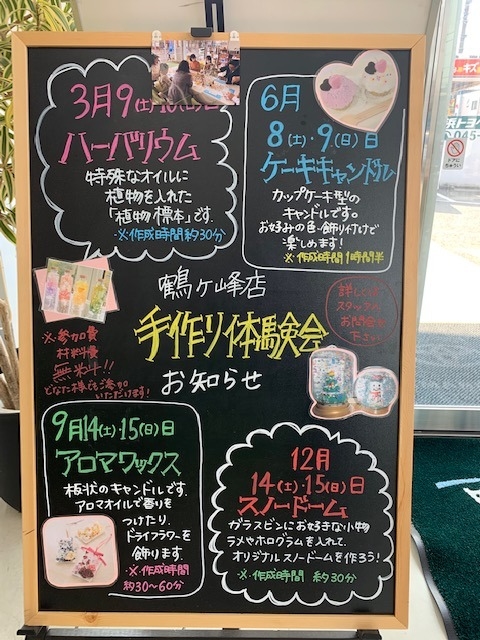 3月9(土)10(日)
ハーバリウム
特殊なオイルに
植物を入れた
「植物標本」です。
※作成時間約30分
6月
8(土)・9(日)日
ケーキキャンドル
カップケーキ型の
キャンドルです。
お好みの色・飾り付けで
楽しめます!
※作成時間1時間半
鶴ケ峰店
手作り体験会
お知らせ
※参加費
材料費
無料!!
どなた様でもご参加
いただけます!
詳しくは
スタッフへ
お問合せ
下さい
9月14(土)・15(日)日
アロマワックス
板状のキャンドルです。
アロマオイルで香りを
つけたり、
ドライフラワーを
飾ります。
※作成時間
約30~60分
12月
14(土)・15(日)日
スノードーム
ガラスビンにお好きな小物
ラメやホログラムを入れて、
オリジナルスノードームを作ろう!
※作成時間 約30分
キズ
浜トヨ
045-